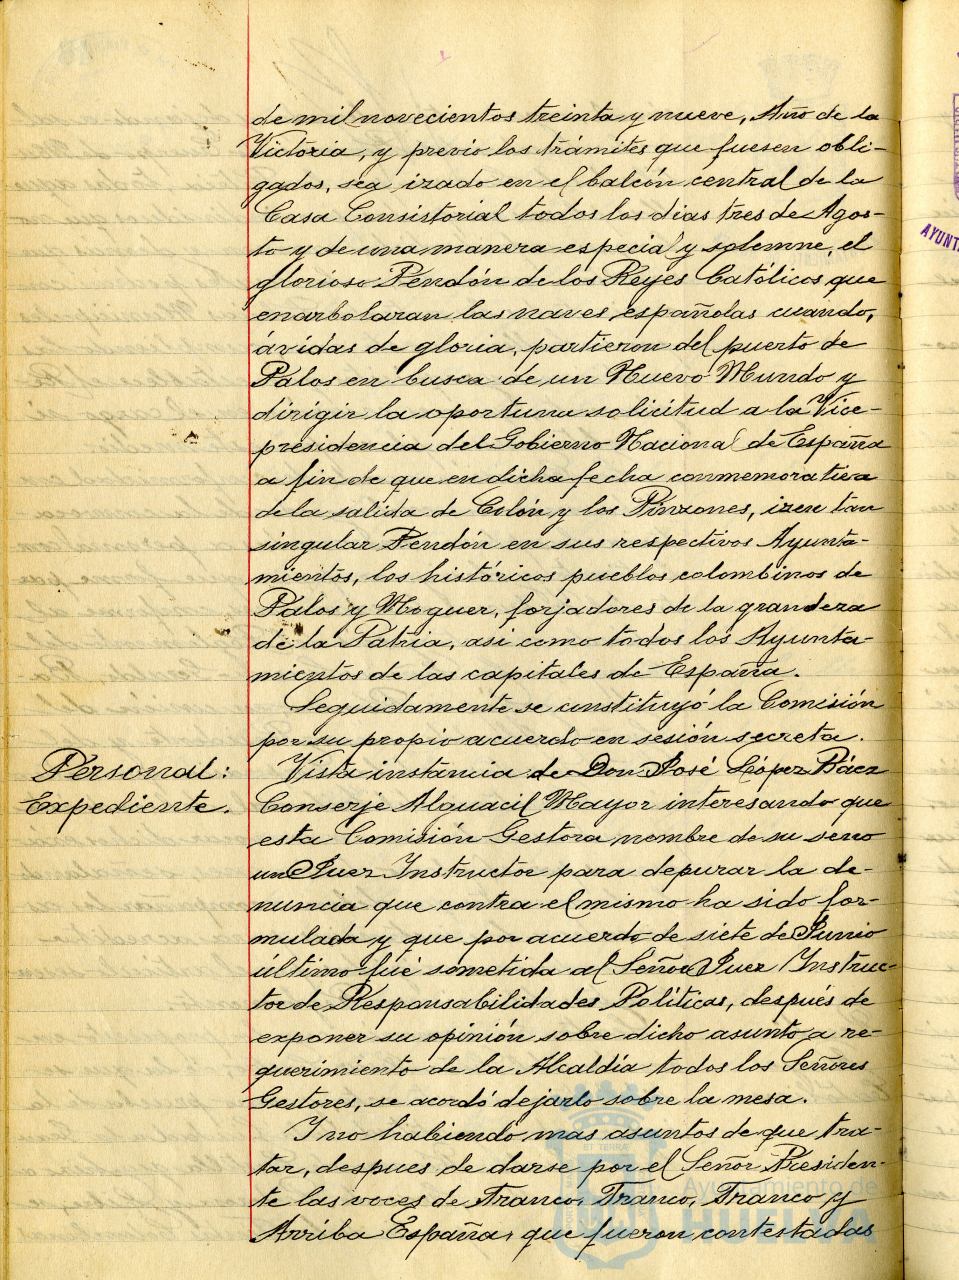 de mil novecientos treinta y nueve, Año de la
Victoria, y previo los trámites que fuesen obli-
gados, sea izado en el balcón central de la
Casa Consistorial todos los dias tres de Agos-
to y de una manera especial y solemne, el
glorioso Pendón de los Reyes Católicos, que
enarbolaran las naves españolas cuando,
ávidas de gloria, partieron del puerto de
Palos en busca de un Nuevo Mundo y
dirigir la oportuna solicitud a la Vice-
presidencia del Gobierno Nacional de España
a fin de que en dicha fecha conmemorativa
de la salida de Colón y los Pinzones, izen tan
singular Pendón en sus respectivos Ayunta-
mientos, los históricos pueblos colombinos de
Palos y Moguer, forjadores de la grandeza
de la Patria, asi como todos los Ayunta-
mientos de las capitales de España.
Seguidamente se constituyó la Comisión
por su propio acuerdo en sesión secreta.
Personal:
Expediente.
Vista instancia de Don José López Báez
Conserje Alguacil Mayor interesando que
esta Comisión Gestora nombre de su seno
un Juez Instructor para depurar la de-
nuncia que contra el mismo ha sido for-
mulada y que por acuerdo de siete de Junio
último fué sometida al Señor Juez Instruc-
tor de Responsabilidades Políticas, después de
exponer su opinión sobre dicho asunto a re-
querimiento de la Alcaldía todos los Señores
Gestores, se acordó dejarlo sobre la mesa.
Y no habiendo mas asuntos de que tra-
tar, despues de darse por el Señor Presiden-
te las voces de Franco, Franco, Franco y
Arriba España, que fueron contestadas
Ayuntamiento de
HUELVA